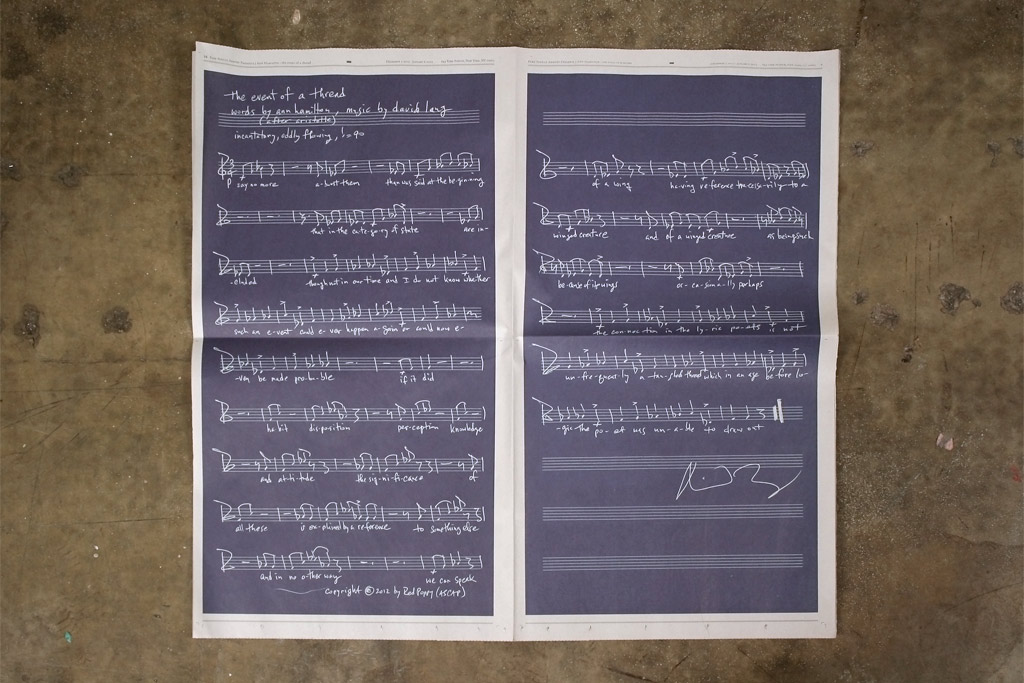 the event of a thread
words by ann hamilton, music by david lang
(after aristotle)
incantatory, oddly flowing, ♩= 90
say no more a-bout them than was said at the be-gin-ning
that in the out-going of state are in-
-cluded
though not in our time and I do not know whether
such an e-vent could e-ver happen a-gain or could now e-
-ver be made pro-ba-ble if it did
habit disposition perception knowledge
and at-ti-tude the sig-ni-fi-cance of
all these is ex-plained by a reference to something else
and in no other way we can speak
copyright © 2012 by Red Poppy (ASCAP)
of a wing having reference necessarily to a
winged creature and of a winged creature as being such
because of its wings oc-ca-sion-a-lly perhaps
the con-nec-tion in the ly-ric po-ets is not
un-fre-quent-ly a tan-gled thread which in an age be-fore lo-
-gic the po-et was un-a-ble to draw out